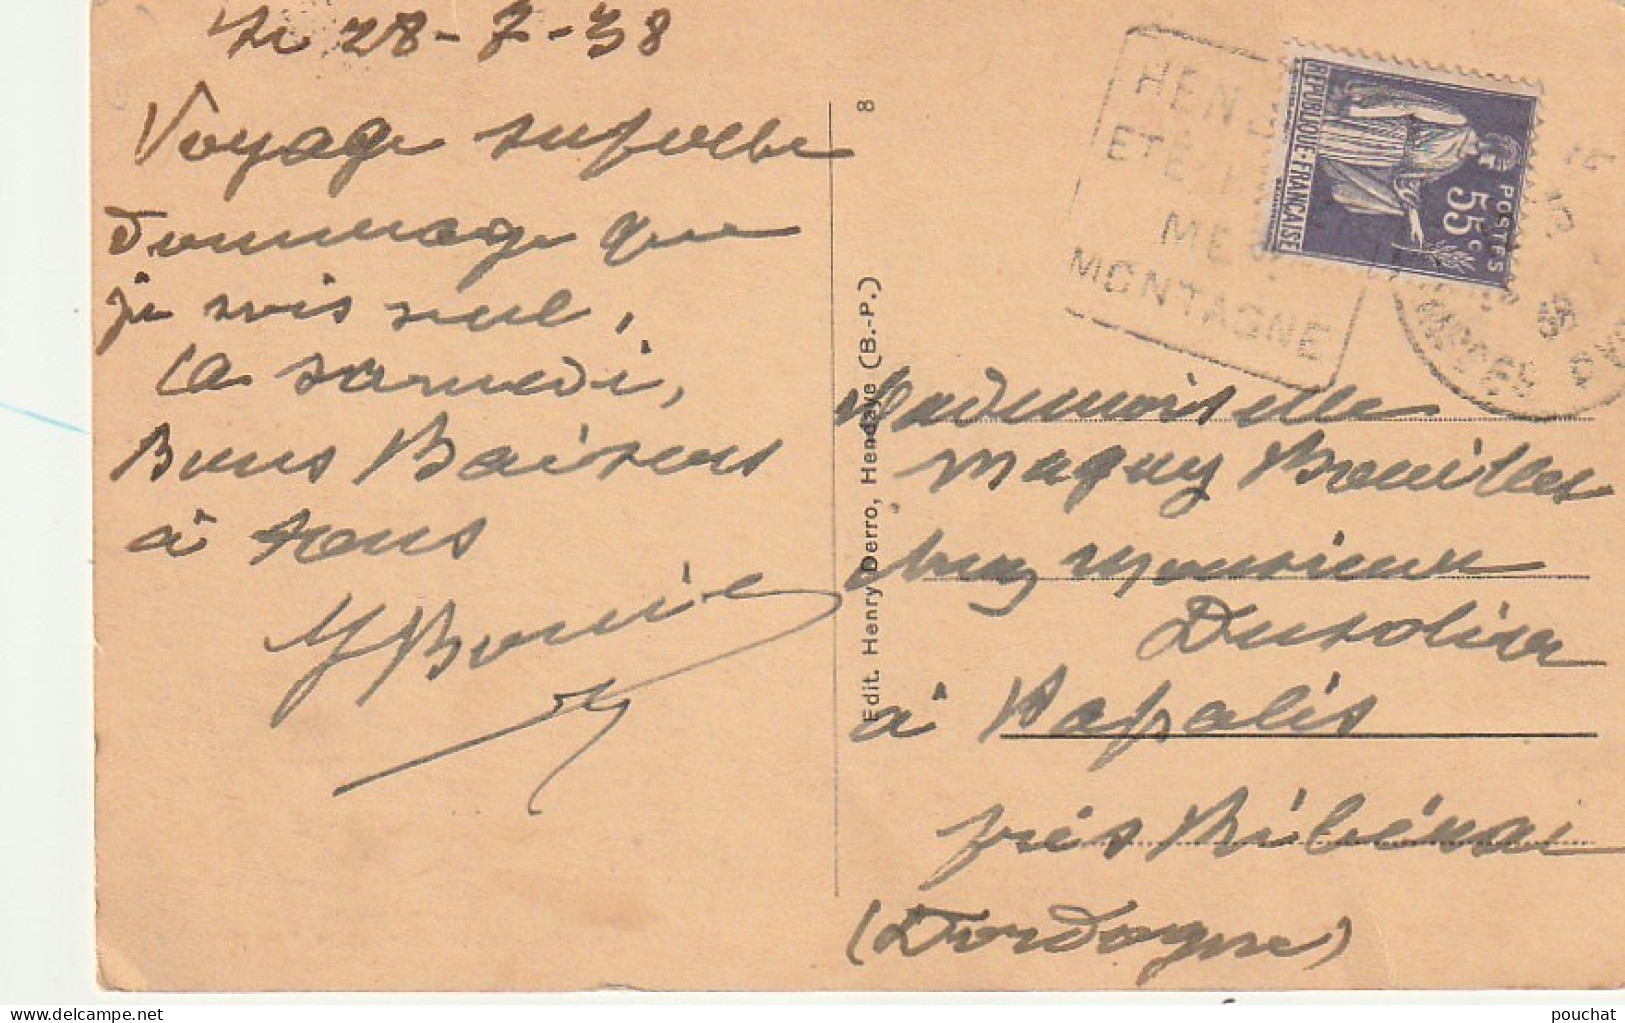 Le 28-7-38
Voyage superbe
dommage que
je sois seul,
(A samedi,
Bons Baisers
à tous
8
Edit. Henry Derro, Hendaye (B.-P.)
HEN
ETÉ
ME
MONTAGNE
REPUBLIQUE-FRANÇAISE
POSTES
55c
Mademoiselle
Maguy
chez Monsieur
Dusolier
à
près Ribérac
(Dordogne)
pouchat